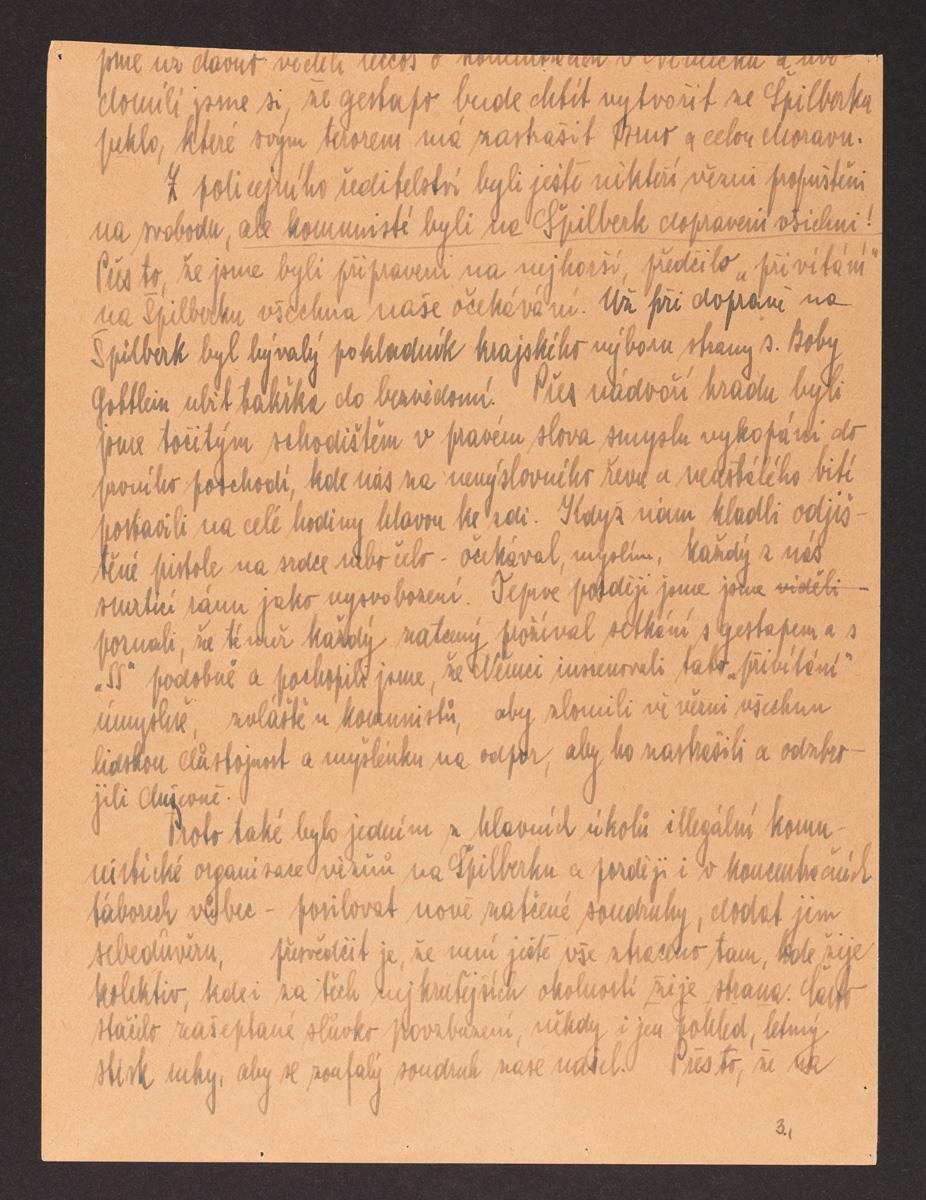 jsme už dávno věděli leccos o komunistech v Německu a uvě-
domili jsme si, že gestapo bude chtít vytvořit ze Špilberku
peklo, které svým terorem má zastrašit Brno a celou Moravu.
Z policejního ředitelství byli ještě někteří vězni propuštěni
na svobodu, ale komunisté byli na Špilberk dopraveni všichni!
Přes to, že jsme byli připraveni na nejhorší, předčilo „přivítání"
na Špilberku všechna naše očekávání. Už při dopravě na
Špilberk byl bývalý pokladník krajského výboru strany s. Boby
Gottlein ubit takřka do bezvědomí. Přes nádvoří hradu byli
jsme točitým schodištěm v pravém slova smyslu vykopáni do
prvního poschodí, kde nás za nevýslovného řevu a neustálého bití
postavili na celé hodiny hlavou ke zdi. Když nám kladli odjiš-
těné pistole na srdce nebo čelo - očekával, myslím, každý z nás
smrtící ránu jako vysvobození. Teprve později jsme jsme viděli
poznali, že téměř každý zatčený prožíval setkání s gestapem a s
„SS" podobně a pochopili jsme, že Němci inscenovali tato „přivítání"
úmyslně, zvláště u komunistů, aby zlomili ve vězni všechnu
lidskou důstojnost a myšlenku na odpor, aby ho zastrašili a odzbro-
jili duševně.
Proto také bylo jedním z hlavních úkolů illegální komu-
nistické organisace vězňů na Špilberku a později i v koncentračních
táborech vůbec - posilovat nově zatčené soudruhy, dodat jim
sebedůvěru, přesvědčit je, že není ještě vše ztraceno tam, kde žije
kolektiv, kde i za těch nejkrutějších okolností žije strana. Často
stačilo zašeptané slůvko povzbuzení, někdy i jen pohled, letmý
stisk ruky, aby se zoufalý soudruh zase našel. Přes to, že na
3.,